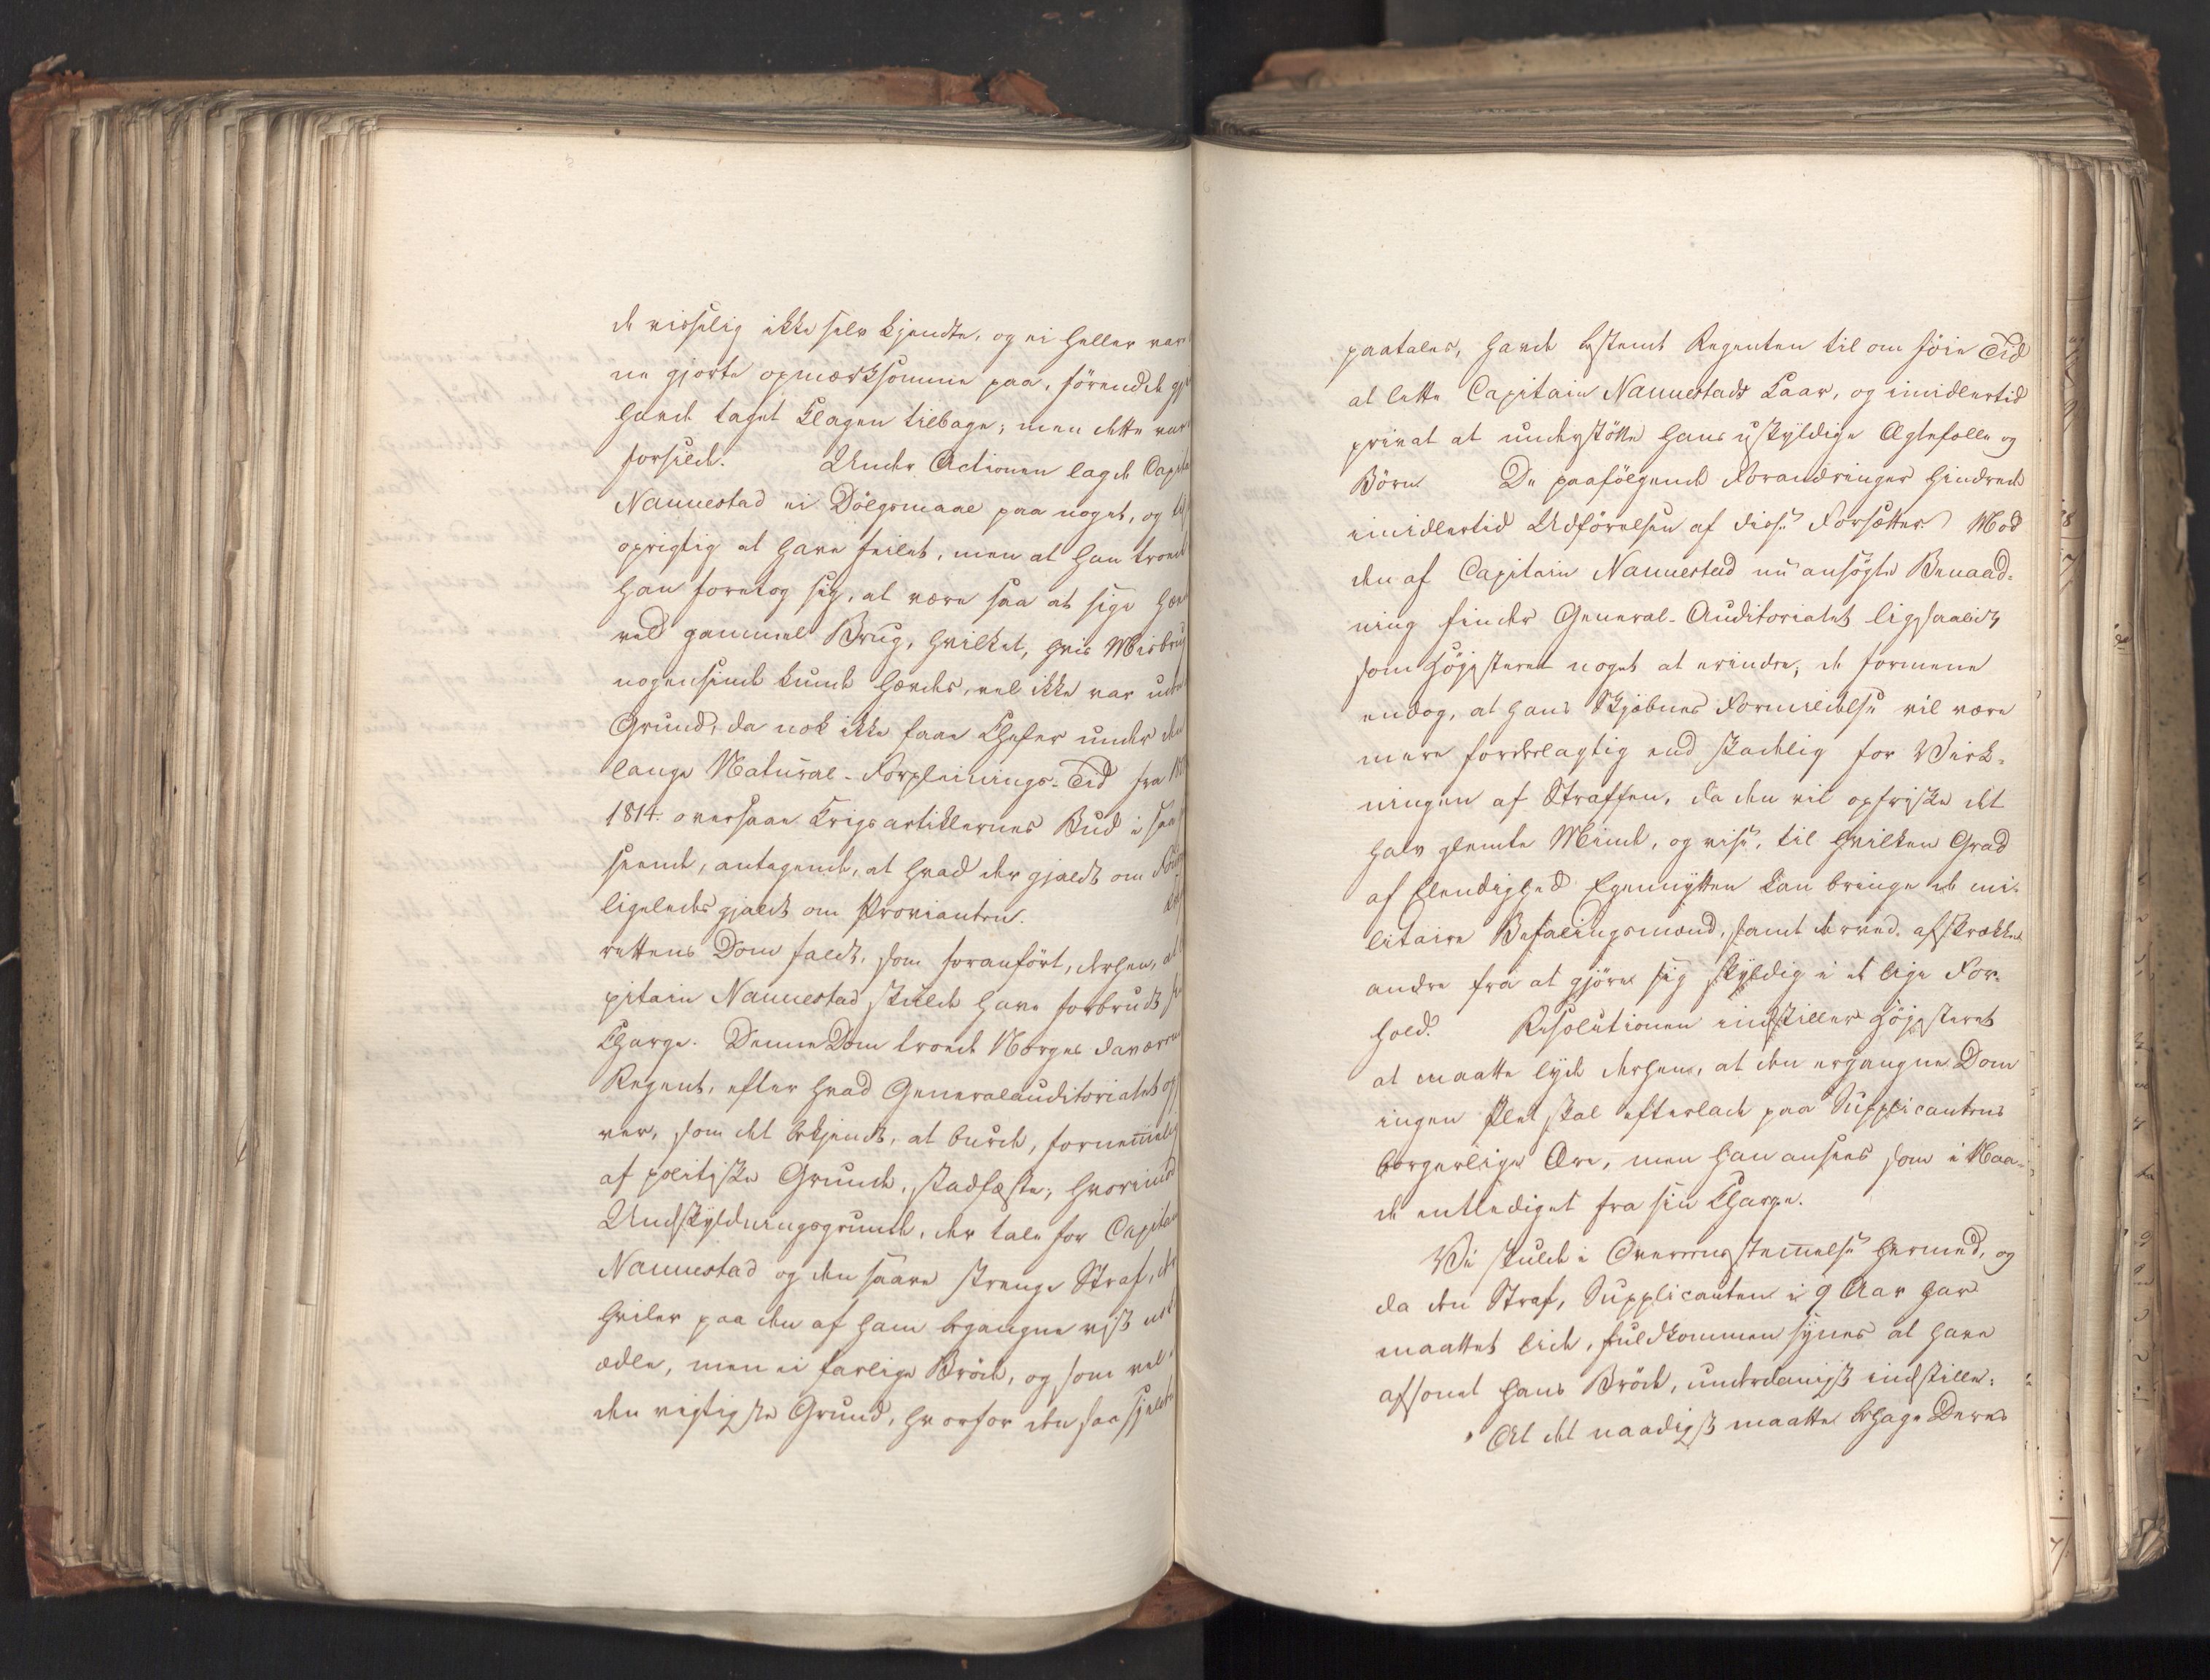 de visselig ikke selv kjendte, og ei heller var
ne gjorte opmærksomme paa, förendde
havde taget Klagen tilbage; men dette var
forsilde. Under Actionen lagde Capit
Nannestad ei Dölgsmaal paa noget, og
oprigtig at have feilet, men at han troede
han foretog sig, at være saa at sige
ved gammel Brug, hvilket, hvis Misbrug
nogensinde kunde hævdes, vel ikke var uden
Grund, da nok ikke faae Chefer under den
lange Natural-Forpleinings-Tid fra
1814. oversaae Krigsartiklernes Bud i saa
seende, antagende, at hvad der gjaldt om
ligeledes gjaldt om Provianten.
rettens Dom faldt, som foranfört, derhen, at
pitain Nannestad skulde have forbrudt
Charge. Denne Dom troede Norges daværen
Regent, efter hvad Generalauditoriatet
ver, som det bekjendt, at burde, fornemmelig
af politiske Grunde, stadfæste; hvorimod
Undskyldningsgrunde, der tale for Capitain
Nannestad og den saare strenge Straf, der
hviler paa den af ham begangne vist
ædle, men ei farlige Bröde, og som vel
den vigtigste Grund, hvorfor den saa sjeldent
paatales, havde bestemt Regenten til om föie Tid
at lette Capitain Nannestads Kaar, og imidlertid
privat at understötte hans uskyldige Ægtefolle og
Börn. De paafölgende Forandringer hindrede
imidlertid Udförelsen af disse Forsætter. Mod
den af Capitain Nannestad nu ansögte Benaad-
ning finder General-Auditoriatet ligesaalidt
som Höjsteret noget at erindre; de formene
endog, at hans Skjebnes Formildelse vil være
mere fordelagtig end skadelig for Virk-
ningen af Straffen, da den vil opfriske det
halv glemte Minde, og vise, til hvilken Grad
af Elendighed Egennytten kan bringe de mi-
litaire Befalingsmænd, samt derved afskrække
andre fra at gjöre sig skyldig i et lige For-
hold. Resolutionen indstiller Höjsteret
at maatte lyde derhen, at den ergangne Dom
ingen Plet skal efterlade paa Supplicantens
borgerlige Ære, men han ansees som i Naa-
de entlediget fra sin Charge.
Vi skulde i Overeensstemmelse hermed, og
da den Straf, Supplicanten i 9 Aar har
maattet lide, fuldkommen synes at have
afsonet hans Bröde, underdanigst indstille:
At det naadigst maatte behage Deres